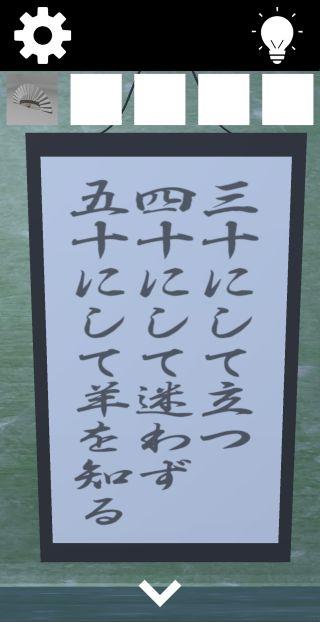 三十にして立つ
四十にして迷わず
五十にして羊を知る